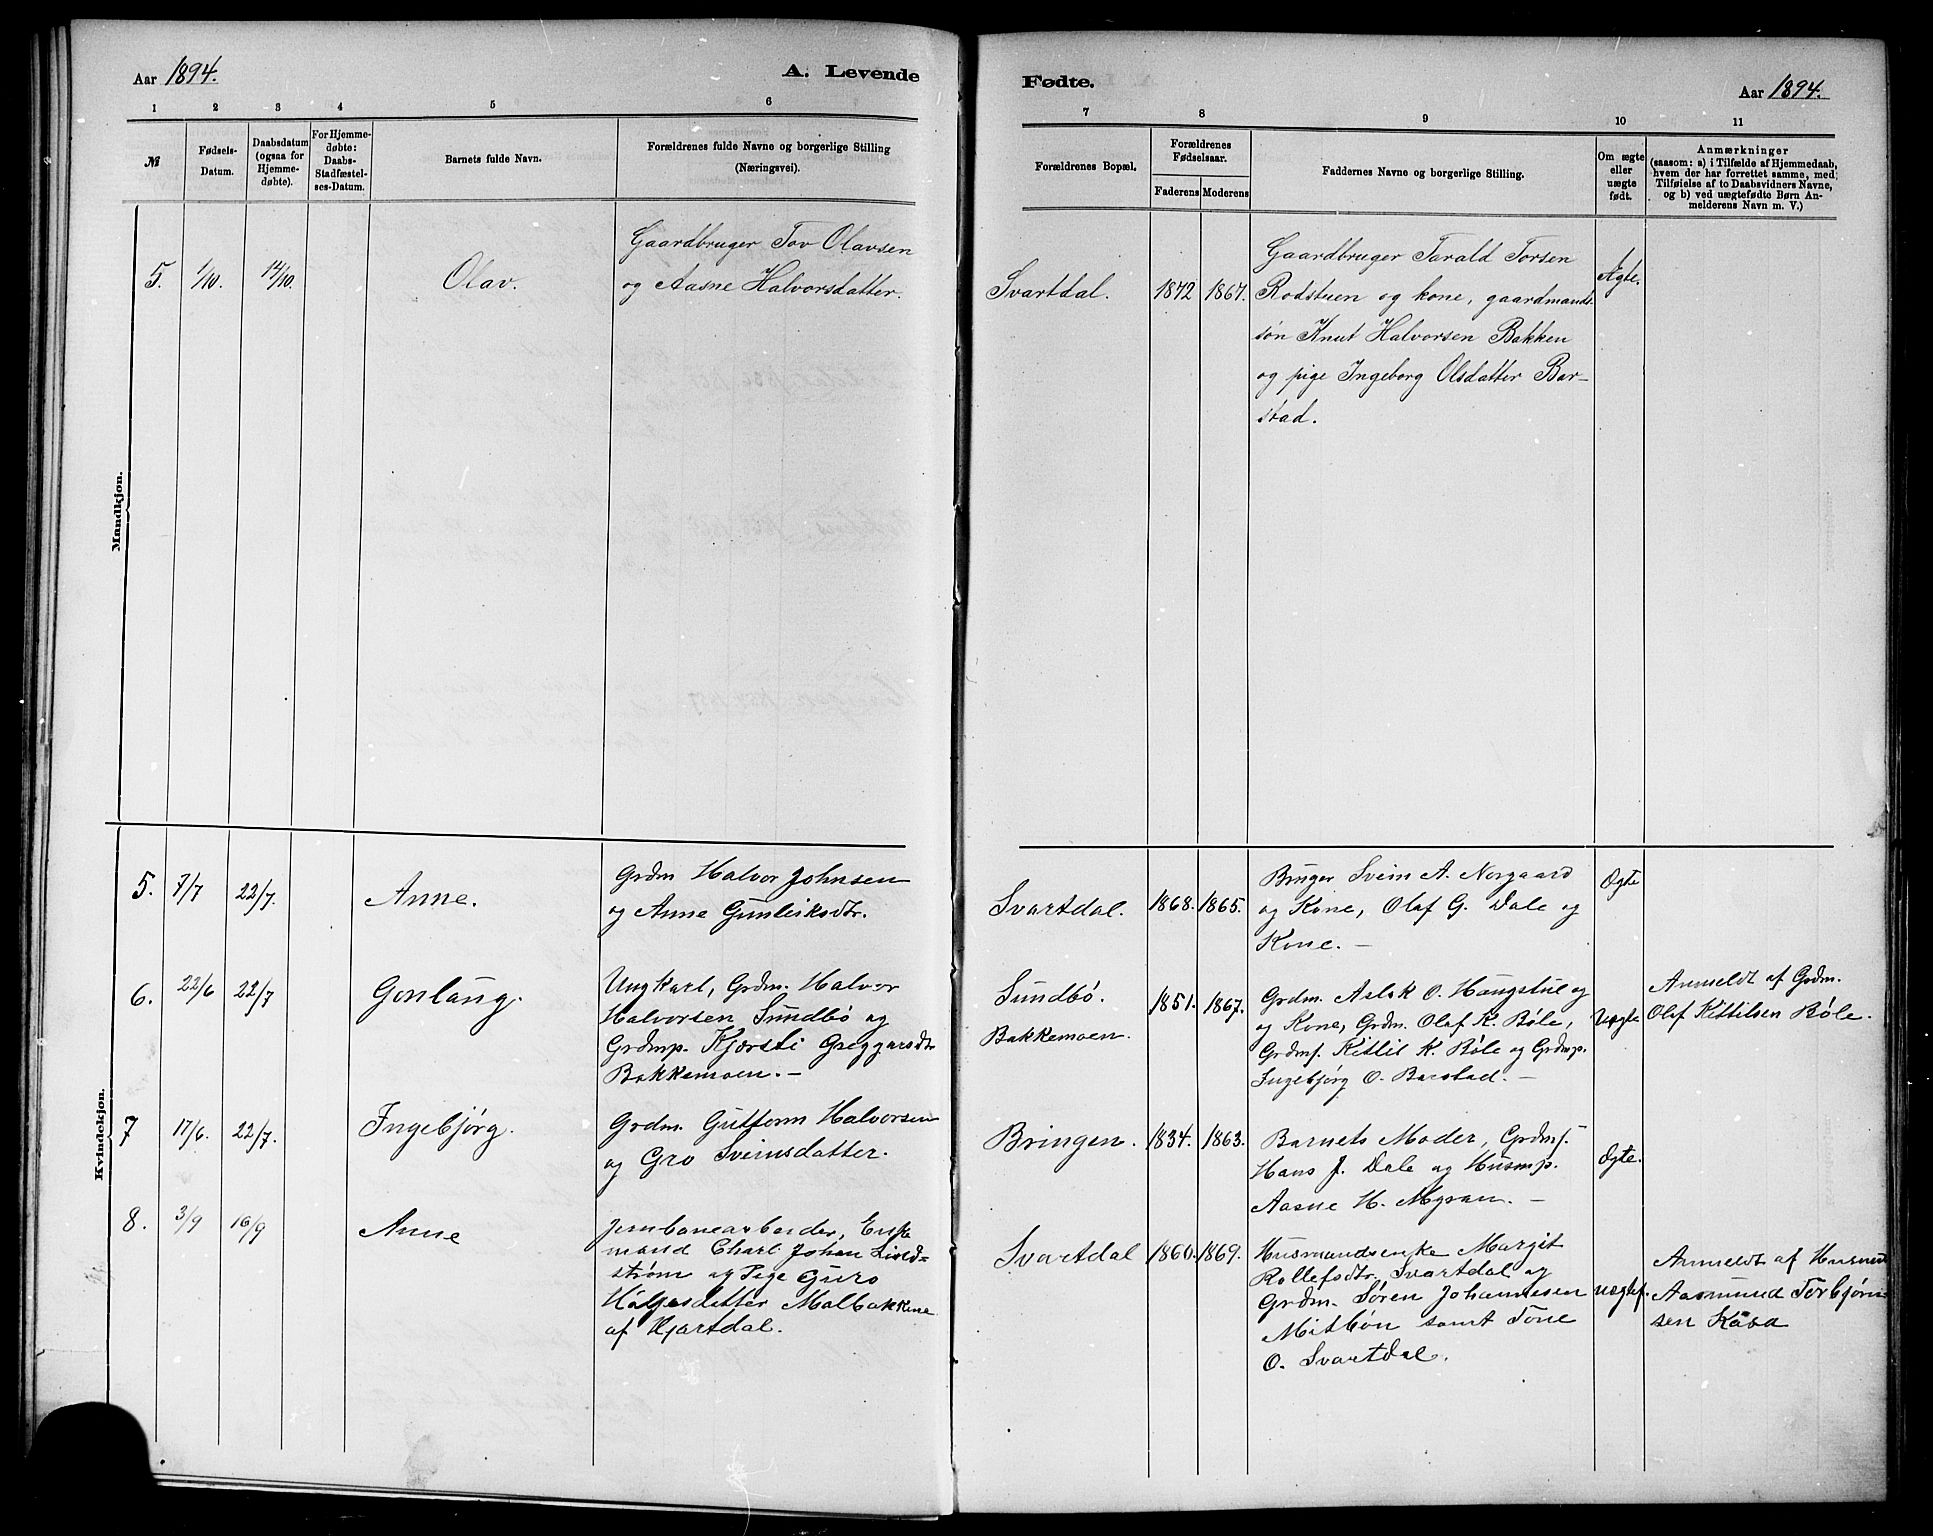 Aar 1894.
A. Levende
Fødte.
Aar 1894.
1 2 3 4 5 6 7 8 9 10 11
№
Fødsels-
Datum.
Daabsdatum
(ogsaa for
Hjemme-
døbte).
For Hjemme-
døbte:
Daabs-
Stadfæstel-
ses-Datum.
Barnets fulde Navn.
Forældrenes fulde Navne og borgerlige Stilling
(Næringsvei).
Forældrenes Bopæl.
Forældrenes
Fødselsaar.
Faderens Moderens
Faddernes Navne og borgerlige Stilling.
Om ægte
eller
uægte
født.
Anmærkninger
(saasom: a) i Tilfælde af Hjemmedaab,
hvem der har forrettet samme, med
Tilføielse af to Daabsvidners Navne,
og b) ved uægtefødte Børn An-
melderens Navn m. V.)
Mandkjøn.
5. 1/10. 14/10. Olav.
Gaardbruger Tov Olavsen
og Aasne Halvorsdatter.
Svartdal. 1872 1867.
Gaardbruger Tarald Torsen
Rodstuen og kone, gaardmands-
søn Knut Halvorsen Bakken
og pige Ingeborg Olsdatter Bar-
stad.
Ægte.
Kvindekjøn.
5. 7/7 22/7. Anne.
Grdm Halvor Johnsen
og Anne Gunleiksdtr.
Svartdal. 1868. 1865.
Bruger Svein A. Norgaard
og Kone, Olaf G. Dale og
Kone. —
Ægte
6. 22/6 22/7 Gonlaug.
Ungkarl, Grdm. Halvor
Halvorsen Sundbö og
Grdmp. Kjersti Greggarsdtr
Bakkemoen. —
Sundbö.
Bakkemoen.
1851. 1867.
Grdm. Aslak O. Haugstue og
og Kone, Grdm. Olaf K. Bøle,
Grdms. Kitlil K. Bøle og Grdmp.
Ingebjörg O. Barstad. —
Uægte
Anmeldt af Grdm.
Olaf Kittilsen Bøle.
7 17/6. 22/7. Ingebjörg.
Grdm. Guttorm Halvorsen
og Gro Sveinsdatter.
Bringen. 1834. 1863.
Barnets Moder, Grdms.
Hans J. Dale og Husmp.
Aasne H. Myran. —
Ægte.
8. 3/9 16/9 Anne
Jernbanearbeider, Enke
mand Charl Johan Lind=
strøm og Pige Guro
Helgesdatter Molbakkene
af Hjartdal.
Svartdal 1860. 1869.
Husmandsenke Margit
Rollefsdtr. Svartdal og
Grdm. Søren Johannesen
Mitbön samt Tone
O. Svartdal.
uægtef.
Anmeldt af Husmd
Aasmund Torbjörn
sen Kåsa